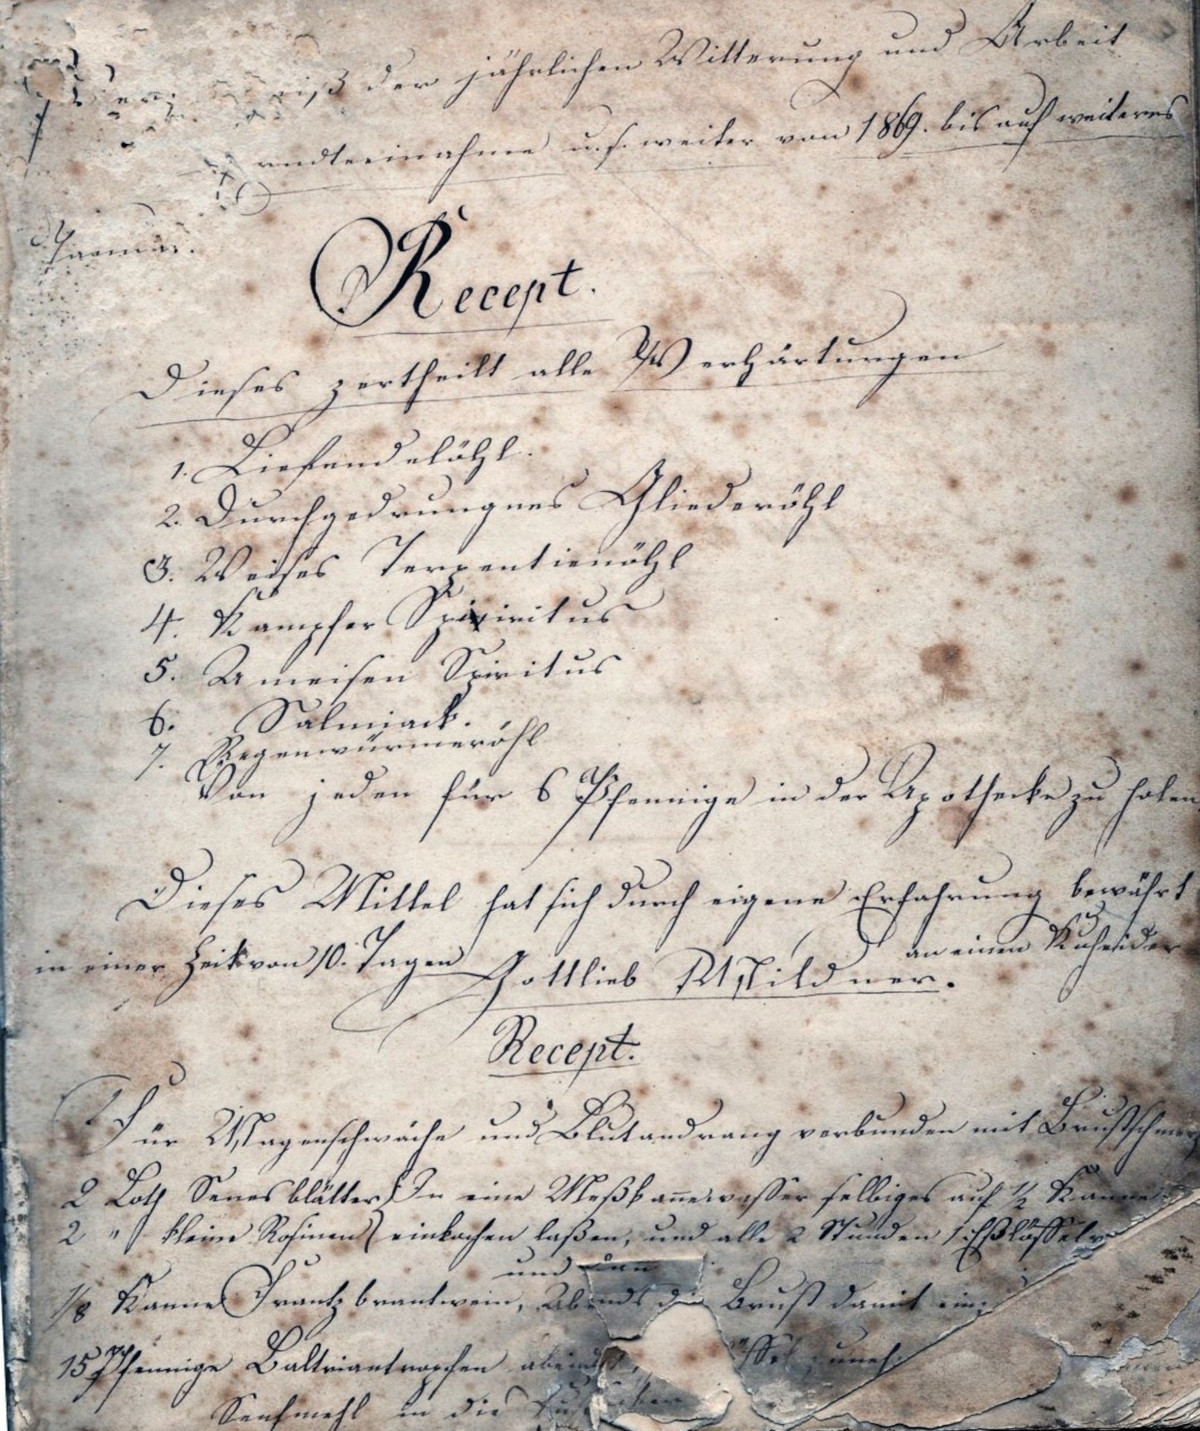 der jährlichen Witterung und Arbeit
u.s. weiter von 1869. bis auf weiteres
Recept.
Dieses zertheilt alle Verhärtungen
1.
2. Durchgedrungnes Gliederöhl
3. Weises Terpentienöhl
4. Kampfer Spiritus
5. Ameisen Spiritus
6. Salmiack.
7. Regenwürmeröhl
Von jeden für 6 Pfennige in der Apothecke zu holen
Dieses Mittel hat sich durch eigene Erfahrung bewährt
an einen
in einer Zeit von 10. Tagen Gottlieb Mildner.
Recept.
Für Magenschwäche und Blutandrang verbunden mit
2 Loth Senesblätter } In eine Meßkanne wasser selbiges auf ½ Kanne
2 " kleine Rosinen } einkochen laßen, und alle 2 Stunden 1 Eßlöffel
und
1/8 Kanne Frantzbrantwein, Abends die Brust damit
15 Pfennige Baltriantropfen
Senfmehl in die